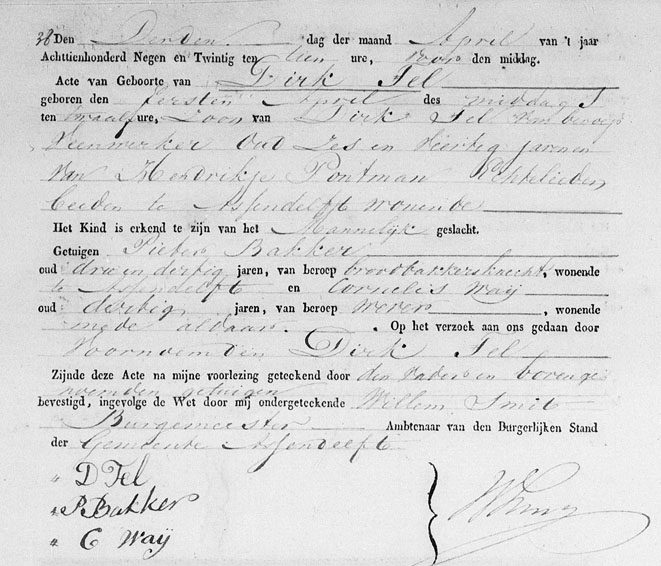 28 Den Derden dag der maand April van 't jaar
Achttienhonderd Negen en Twintig ten tien ure, voor den middag.
Acte van Geboorte van Dirk Tel
geboren den Eersten April des middags
ten twaalf ure, Zoon van Dirk Tel van beroep
Veenwerker oud Zes en Veertig jaren en
van Hendrikje Pontman Echtelieden
beiden te Assendelft wonende
Het Kind is erkend te zijn van het Mannelijk geslacht.
Getuigen Pieter Bakker
oud drie en dertig jaren, van beroep broodbakkersknecht, wonende
te Assendelft en Cornelis Waij
oud dertig jaren, van beroep wever, wonende
mede aldaar. Op het verzoek aan ons gedaan door
Voornoemden Dirk Tel
Zijnde deze Acte na mijne voorlezing geteekend door den Vader en bovenge
noemden getuigen
bevestigd, ingevolge de Wet door mij ondergeteekende Willem Smit
Burgemeester Ambtenaar van den Burgerlijken Stand
der Gemeente Assendelft
" D Tel
" P Bakker
" C Waij